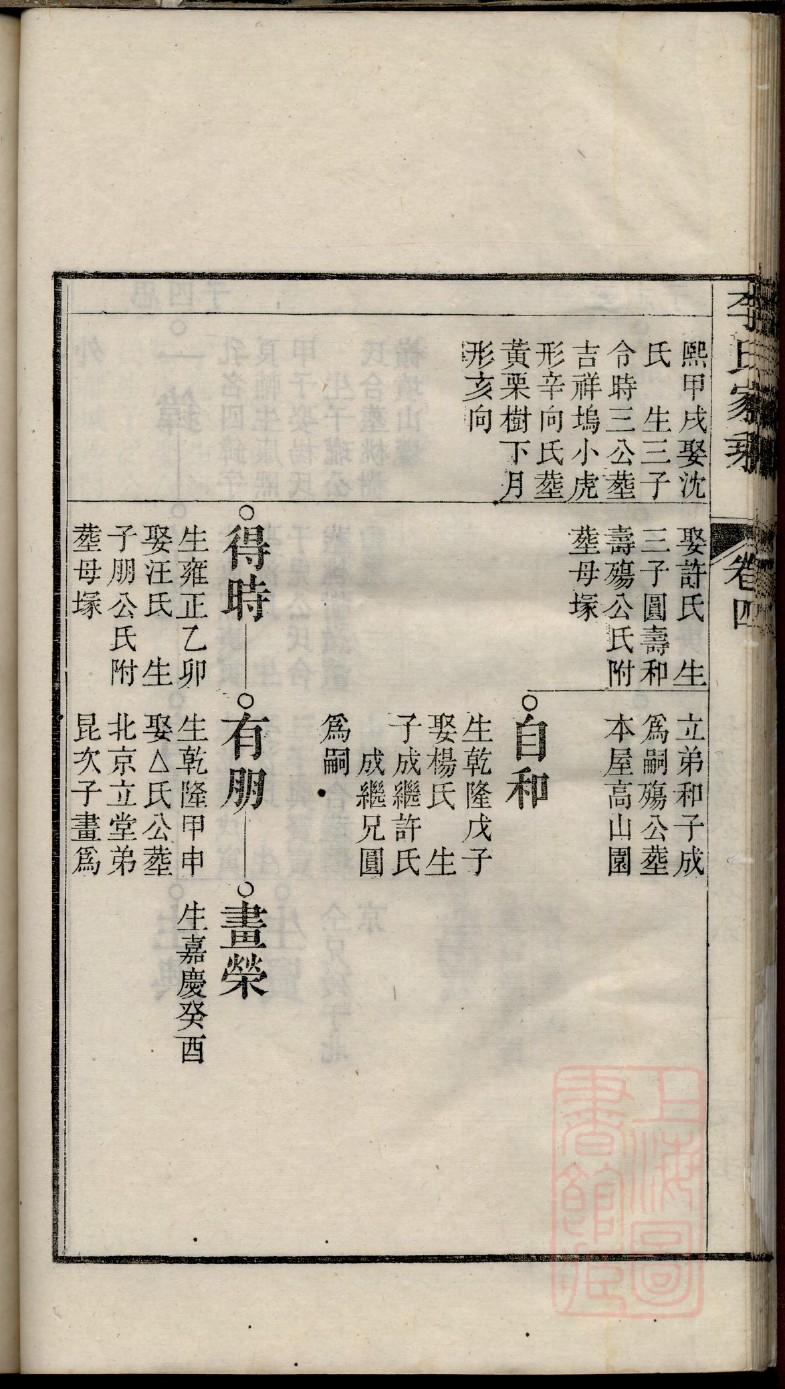 李氏家乘
卷四
熙甲戌娶沈
氏　生三子
令時三公塟
吉祥塢小虎
形辛向氏塟
黃栗樹下月
形亥向
娶許氏　生
三子圓壽和
壽殤公氏附
塟母塚
立弟和子成
爲嗣殤公塟
本屋高山園
自和
生乾隆戊子
娶楊氏　生
子成繼許氏
成繼兄圓
爲嗣
得時
生雍正乙卯
娶汪氏　生
子朋公氏附
塟母塚
有朋
生乾隆甲申
娶△氏公塟
北京立堂弟
昆次子畫爲
畫榮
生嘉慶癸酉
上海圖
書館藏